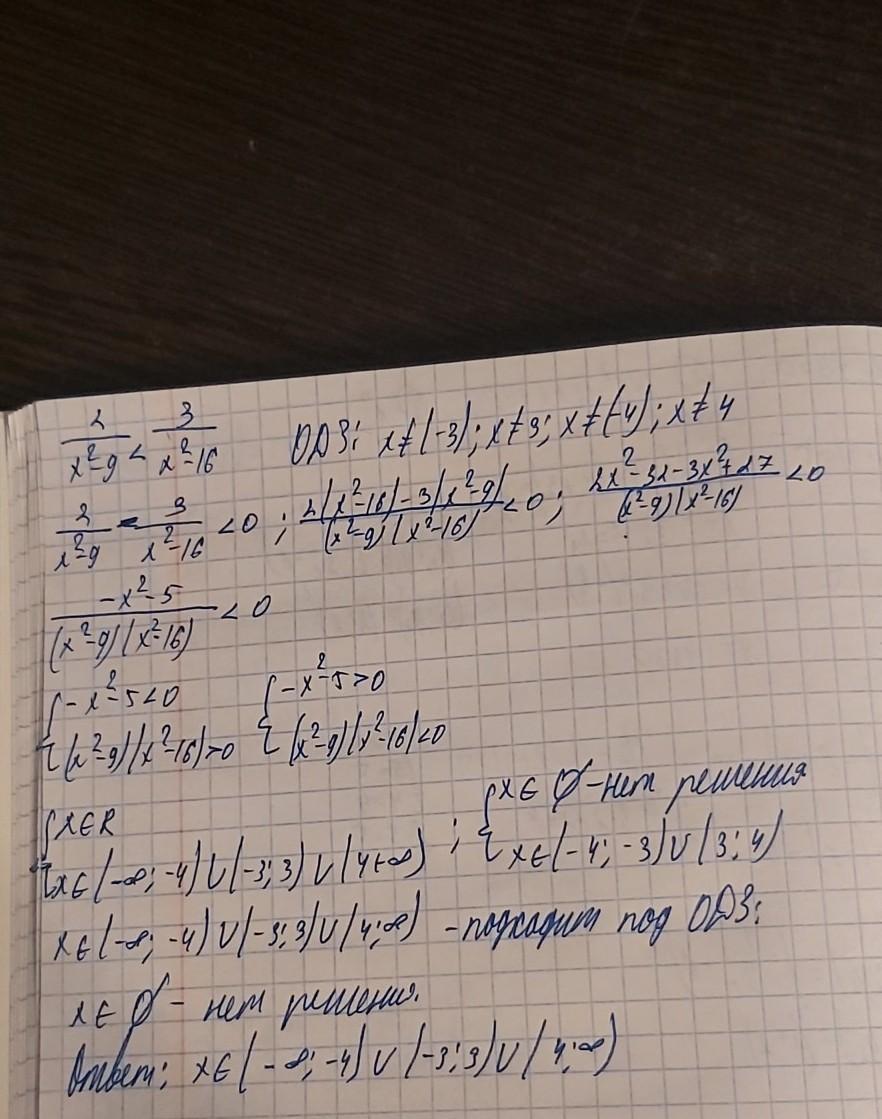 2/(x²-9) < 3/(x²-16) ОДЗ: x≠(-3); x≠3; x≠(-4); x≠4
2/(x²-9) - 3/(x²-16) <0 ; (2(x²-16)-3(x²-9))/((x²-9)(x²-16)) <0 ; (2x²-32-3x²+27)/((x²-9)(x²-16)) <0
(-x²-5)/((x²-9)(x²-16)) <0
{-x²-5<0 {-x²-5>0
{(x²-9)(x²-16)>0 {(x²-9)(x²-16)<0
{x∈R ; {x∈ ∅ - нет решения
{x∈(-∞; -4)∪(-3; 3)∪(4+∞) {x∈(-4; -3)∪(3; 4)
x∈(-∞; -4)∪(-3; 3)∪(4; ∞) - подходит под ОДЗ:
x∈ ∅ - нет решения.
Ответ: x∈(-∞; -4)∪(-3; 3)∪(4; ∞)